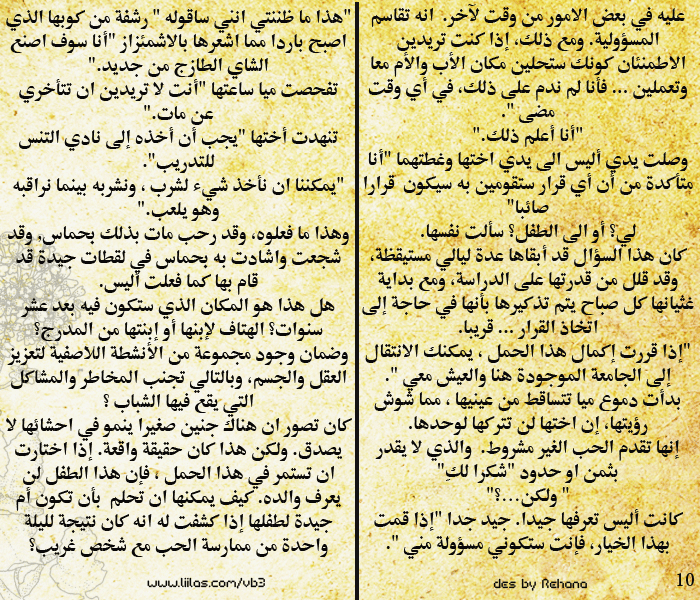 عليه في بعض الامور من وقت لآخر. انه تقاسم
المسؤولية. ومع ذلك، إذا كنت تريدين
الاطمئنان كونك ستحلين مكان الأب والأم معا
وتعملين ... فأنا لم ندم على ذلك، في أي وقت
مضى ".
"أنا أعلم ذلك."
وصلت يدي أليس الى يدي اختها وغطتهما "أنا
متأكدة من أن أي قرار ستقومين به سيكون قرارا
صائبا"
لي؟ أو الى الطفل؟ سألت نفسها.
كان هذا السؤال قد أبقاها عدة ليالي مستيقظة،
وقد قلل من قدرتها على الدراسة، ومع بداية
غثيانها كل صباح يتم تذكيرها بأنها في حاجة إلى
اتخاذ القرار ... قريبا.
"إذا قررت إكمال هذا الحمل ، يمكنك الانتقال
إلى الجامعة الموجودة هنا والعيش معي ".
بدأت دموع ميا تتساقط من عينيها ، مما شوش
رؤيتها، إن اختها لن تتركها لوحدها.
إنها تقدم الحب الغير مشروط. والذي لا يقدر
بثمن او حدود "شكرا لك"
" ولكن...؟"
كانت أليس تعرفها جيدا. جيد جدا "إذا قمت
بهذا الخيار، فإنت ستكوني مسؤولة مني ".
des by Rehana
10
"هذا ما ظننتي انني ساقوله " رشفة من كوبها الذي
اصبح باردا مما اشعرها بالاشمئزاز "أنا سوف اصنع
الشاي الطازج من جديد."
تفحصت ميا ساعتها "أنت لا تريدين ان تتأخري
عن مات."
تنهدت أختها "يجب أن أخذه إلى نادي التنس
للتدريب".
"يمكننا ان نأخذ شيء لشرب ، ونشربه بينما نراقبه
وهو يلعب."
وهذا ما فعلوه، وقد رحب مات بذلك بحماس. وقد
شجعت واشادت به بحماس في لقطات جيدة قد
قام بها كما فعلت أليس.
هل هذا هو المكان الذي ستكون فيه بعد عشر
سنوات؟ الهتاف لإبنها أو إبنتها من المدرج؟
وضمان وجود مجموعة من الأنشطة اللاصفية لتعزيز
العقل والجسم، وبالتالي تجنب المخاطر والمشاكل
التي يقع فيها الشباب ؟
كان تصور ان هناك جنين صغيرا ينمو في احشائها لا
يصدق. ولكن هذا كان حقيقة واقعة. إذا اختارت
ان تستمر في هذا الحمل ، فإن هذا الطفل لن
يعرف والده. كيف يمكنها ان تحلم بأن تكون أم
جيدة لطفلها إذا كشفت له انه كان نتيجة لليلة
واحدة من ممارسة الحب مع شخص غريب؟
www.liilas.com/vb3